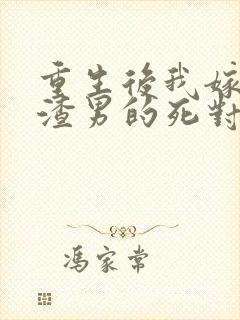 重生後我嫁
渣男的死對
馮家常